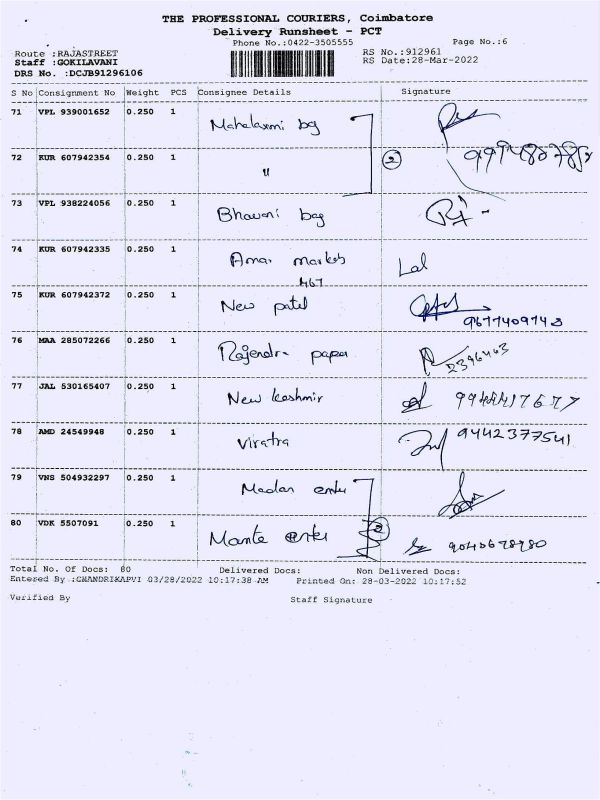 THE PROFESSIONAL COURIERS, Coimbatore
Delivery Runsheet - PCT
Phone No.:0422-3505555
Page No.:6
Route :RAJASTREET
RS No.:912961
Staff :GOKILAVANI
RS Date:28-Mar-2022
DRS No. :DCJB91296106
S No Consignment No Weight PCS Consignee Details Signature
71 VPL 939001652 0.250 1 Mahalaxmi bag
72 KUR 607942354 0.250 1 " 2
73 VPL 938224056 0.250 1 Bhavani bag
74 KUR 607942335 0.250 1 Amar Lal
467
75 KUR 607942372 0.250 1 New patel
9677409743
76 MAA 285072266 0.250 1 Rajendra paper 2396463
77 JAL 530165407 0.250 1 New Kashmir
78 AMD 24549948 0.250 1 Viratra 9442377541
79 VNS 504932297 0.250 1 Madan
80 VDK 5507091 0.250 1 2
Total No. Of Docs: 80 Delivered Docs: Non Delivered Docs:
Entered By :CHANDRIKAPVI 03/28/2022 10:17:38 AM Printed On: 28-03-2022 10:17:52
Verified By Staff Signature